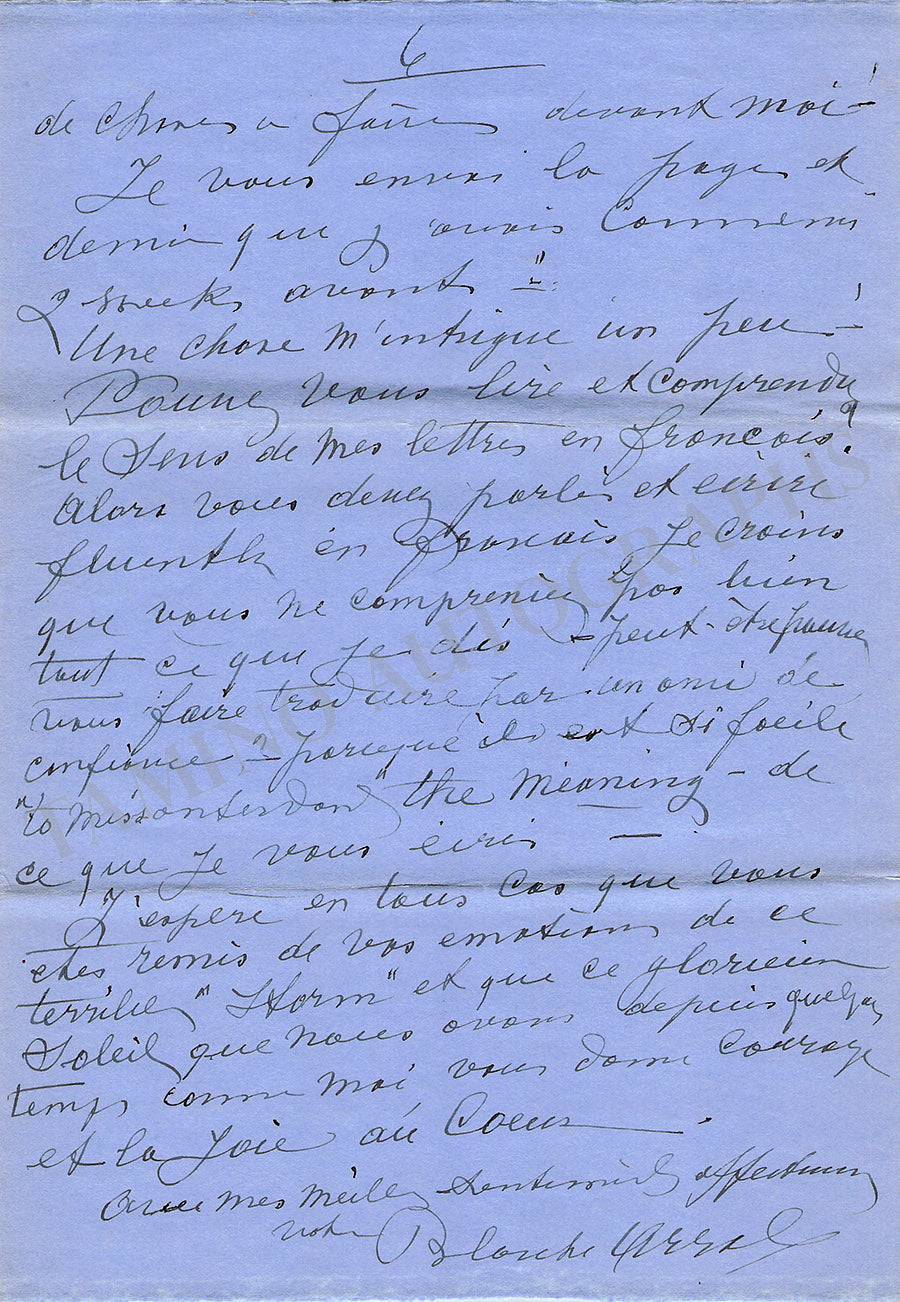 6
de choses a faire devant moi-!
Je vous envoi la page et
demie que j'avais commenci
2 weeks avant
Une chose m'intrigue un peu-!
Pouvez vous lire et comprendre
le Sens de mes lettres en francais?
Alors vous devez parler et ecrire
fluently en francais Je crains
que vous ne compreniez pas bien
tout ce que je dis - peut-être pouvez
vous faire traduire par un ami de
confiance - parceque il est si facile
"to missonterdand" the meaning - de
ce que Je vous ecris -
J'espere en tous cas que vous
etes remis de vos emotions de ce
terrible "Storm" et que ce glorieux
Soleil que nous avons depuis quelque
temps comme moi vous donne courage
et la Joie au Coeur.
Avec mes meilleurs sentiments affectueux
votre Blanche Arral
TAMINO AUTOGRAPHS